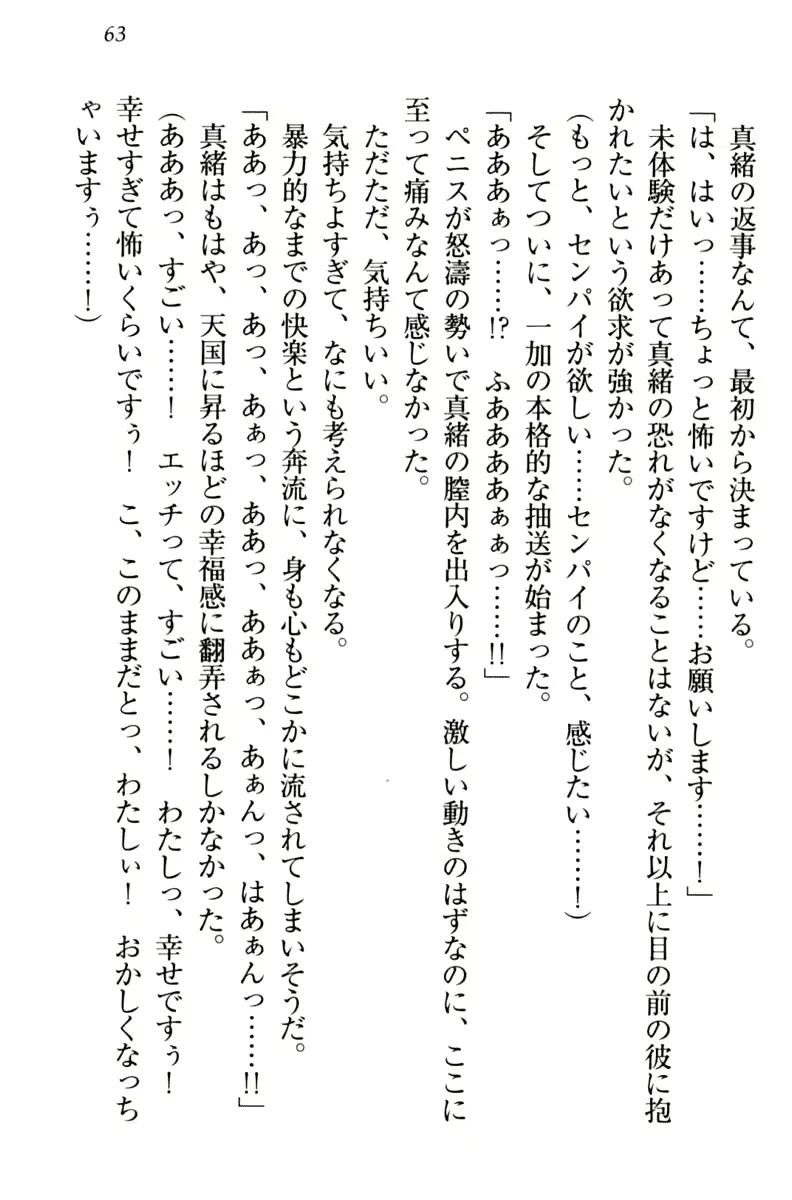 63
真緒の返事なんて、最初から決まっている。
「は、はいっ……ちょっと怖いですけど……お願いします……！」
未体験だけあって真緒の恐れがなくなることはないが、それ以上に目の前の彼に抱
かれたいという欲求が強かった。
（もっと、センパイが欲しい……センパイのこと、感じたい……！）
そしてついに、一加の本格的な抽送が始まった。
「あああぁっ……!?　ふああああぁぁっ……!!」
ペニスが怒濤の勢いで真緒の膣内を出入りする。激しい動きのはずなのに、ここに
至って痛みなんて感じなかった。
ただただ、気持ちいい。
気持ちよすぎて、なにも考えられなくなる。
暴力的なまでの快楽という奔流に、身も心もどこかに流されてしまいそうだ。
「ああっ、あっ、あっ、あぁっ、ああっ、ああぁっ、あぁんっ、はあぁんっ……!!」
真緒はもはや、天国に昇るほどの幸福感に翻弄されるしかなかった。
（あああっ、すごい……！　エッチって、すごい……！　わたしっ、幸せですぅ！
幸せすぎて怖いくらいですぅ！　こ、このままだとっ、わたしぃ！　おかしくなっち
ゃいますぅ……！）